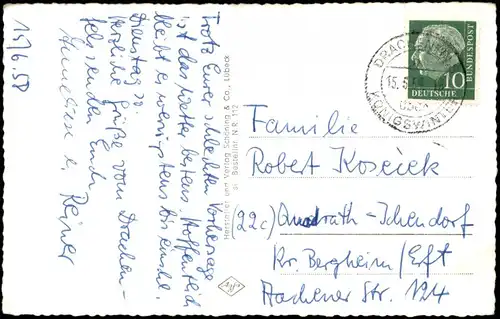 15/6.58
Trotz Eurer schlechten Vorhersage
ist das Wetter bestens. Hoffentlich
bleibt es wenigstens bis einschl.
Dienstag so.
Herzliche Grüße vom Drachen-
felsen senden Euch
Anneliese u. Reiner
Hersteller und Verlag Schöning & Co., Lübeck
Bestellnr. N.R. 112
DEUTSCHE BUNDESPOST
10
KÖNIGSWINTER
Familie
Robert Kosecek
(22c) Quadrath-Ichendorf
Kr. Bergheim/Erft
Aachener Str. 124